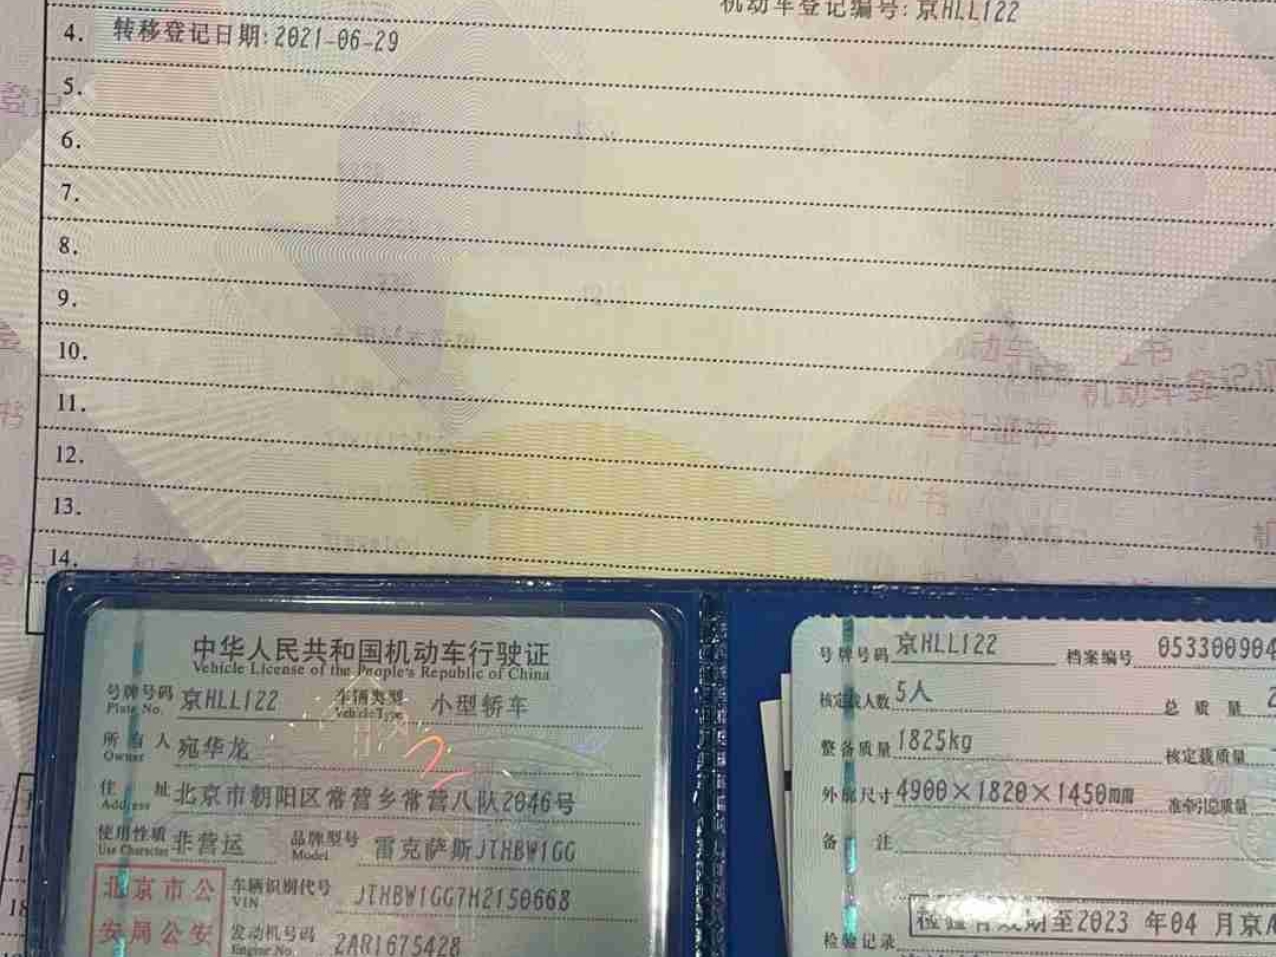 机动车登记编号:京HLL122
4. 转移登记日期:2021-06-29
5.
6.
7.
8.
9.
10.
11.
12.
13.
14.
中华人民共和国机动车行驶证
Vehicle License of the People's Republic of China
号牌号码 京HLL122 车辆类型 小型轿车
Plate No. Vehicle Type
所有人 宛华龙
Owner
住址 北京市朝阳区常营乡常营八队2046号
Address
使用性质 非营运 品牌型号 雷克萨斯JTHBW1GG
Use Character Model
北京市公 车辆识别代号 JTHBW1GG7H2150668
VIN
安局公安 发动机号码 2AR1675428
Engine No.
号牌号码 京HLL122 档案编号 053300904
核定载人数 5人 总质量 2
整备质量 1825kg 核定载质量
外廓尺寸 4900×1820×1450 准牵引总质量
备注
检验有效期至2023 年04 月京A
检验记录